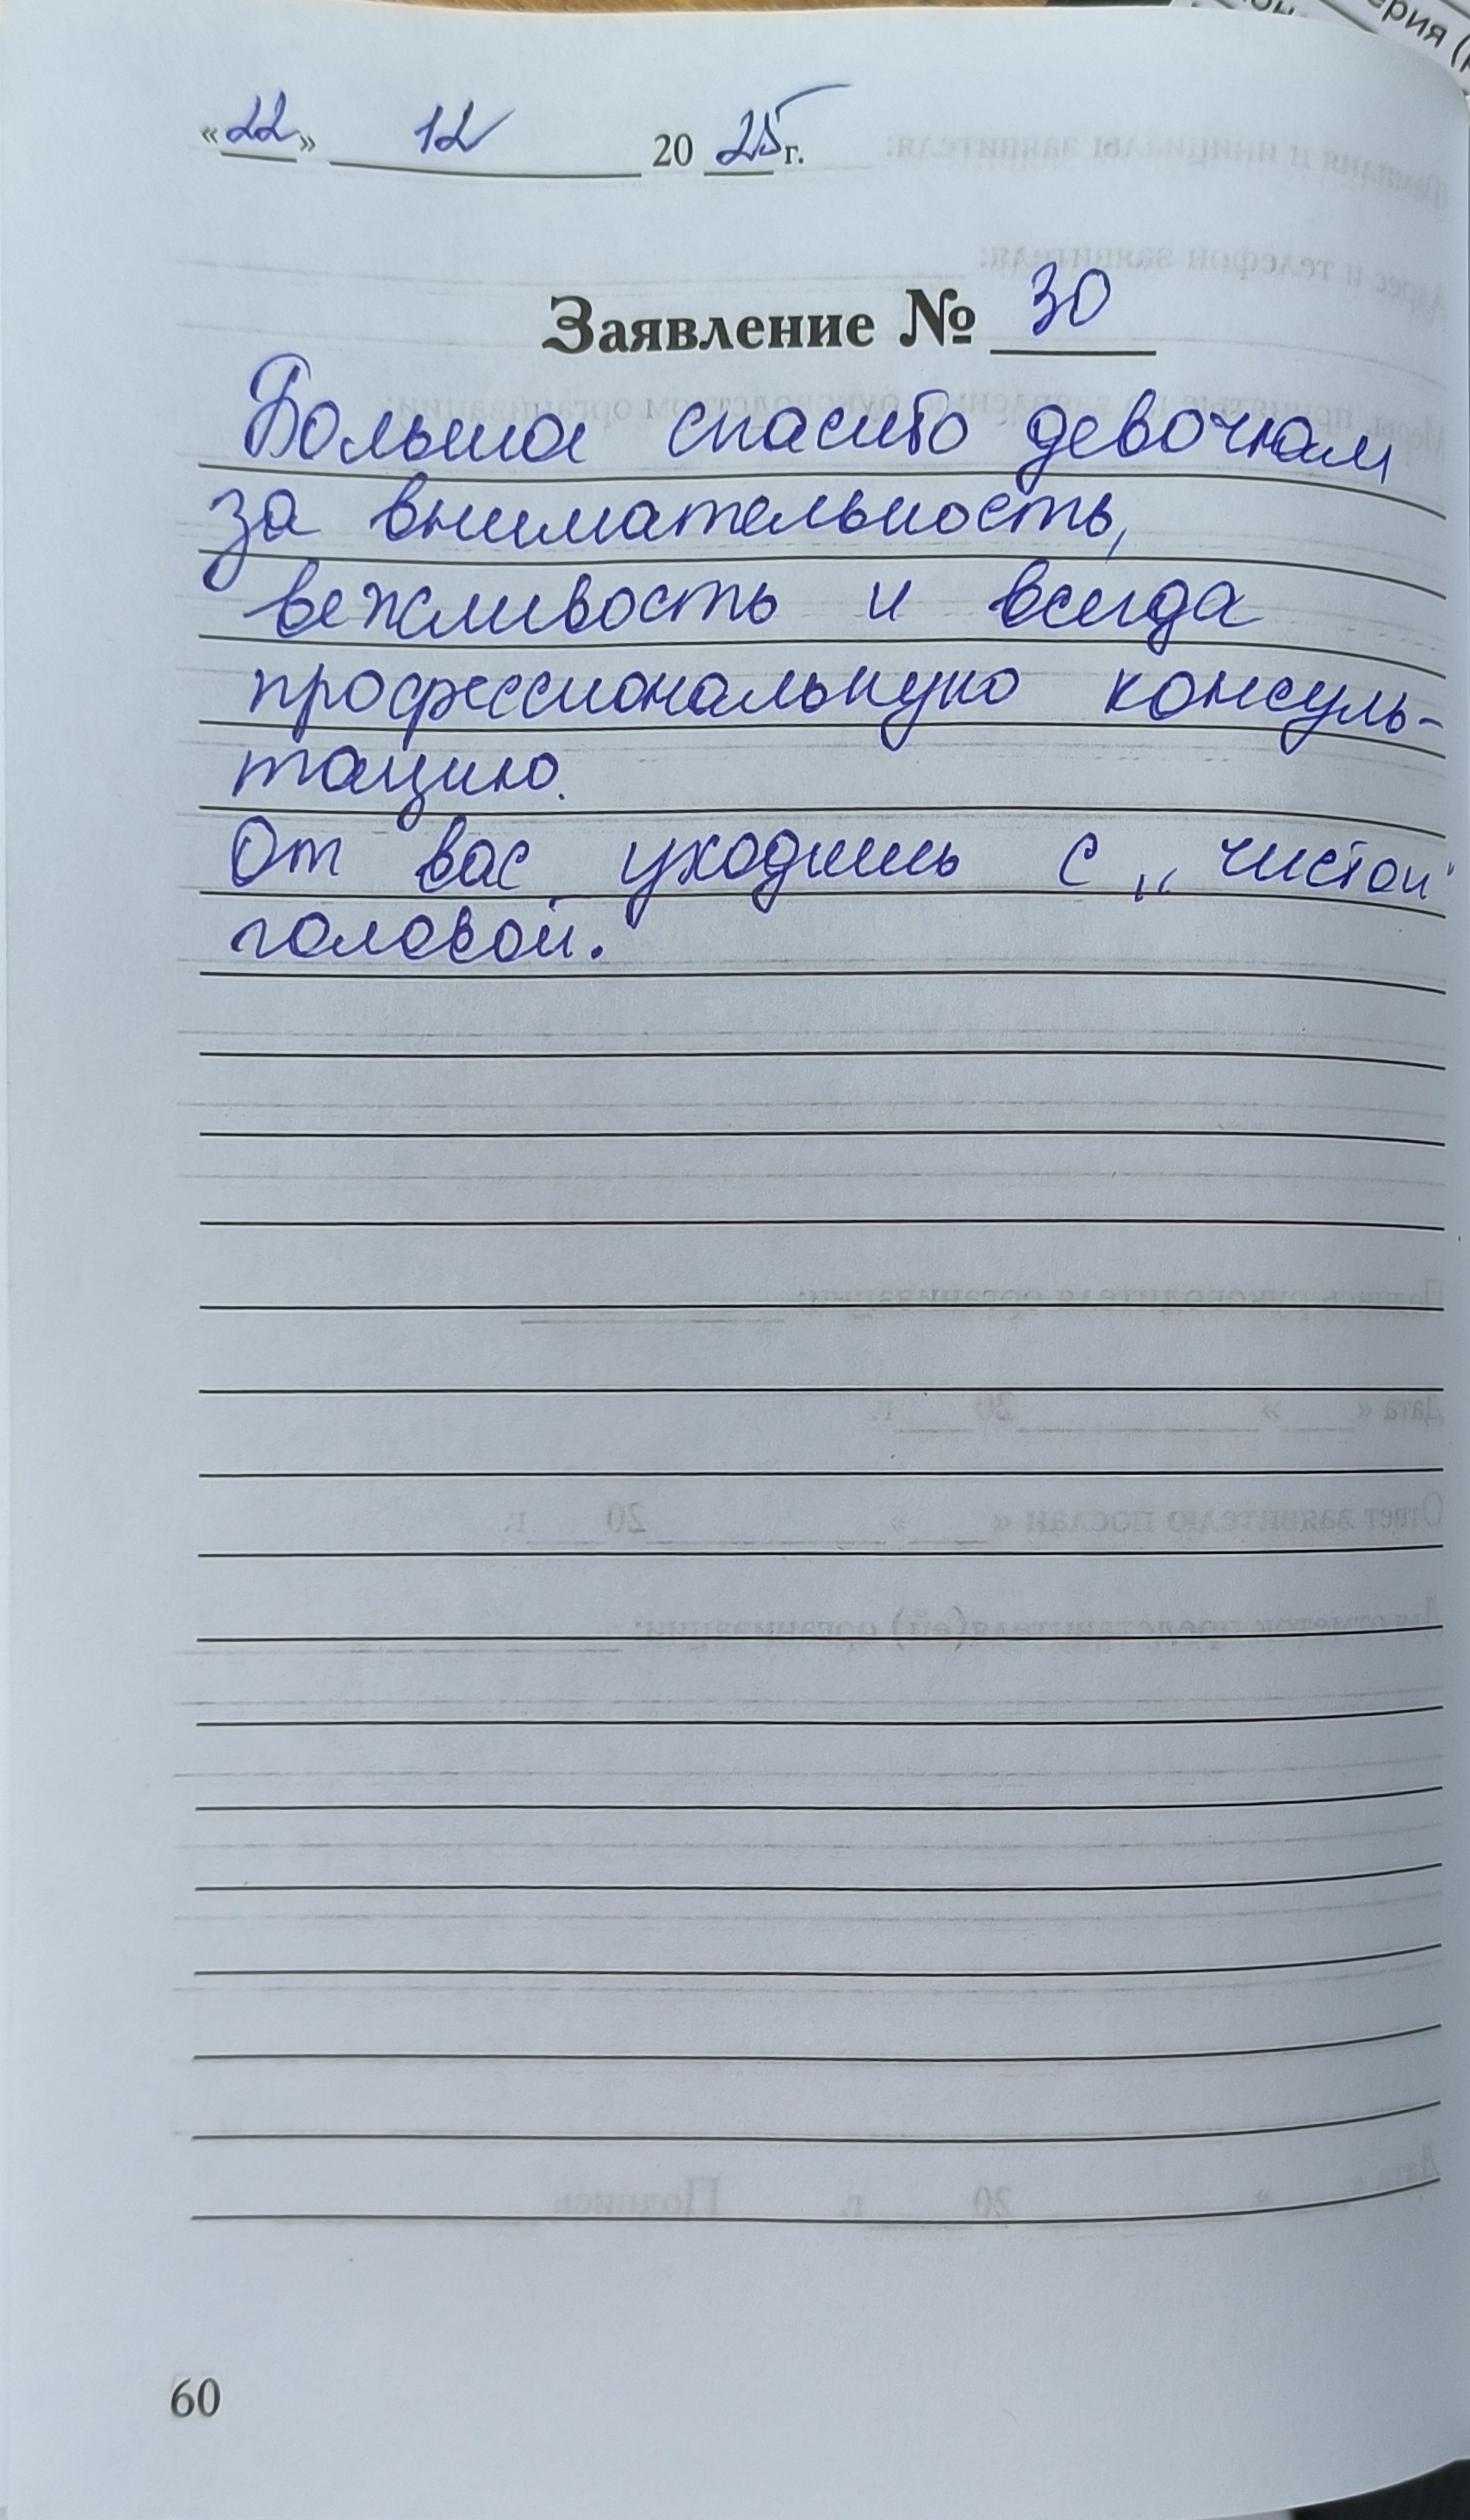 «22» 12 2025 г.
Заявление № 30
Большое спасибо девочкам
за внимательность,
вежливость и всегда
профессиональную консуль-
тацию.
От вас уходишь с „чистой"
головой.
60